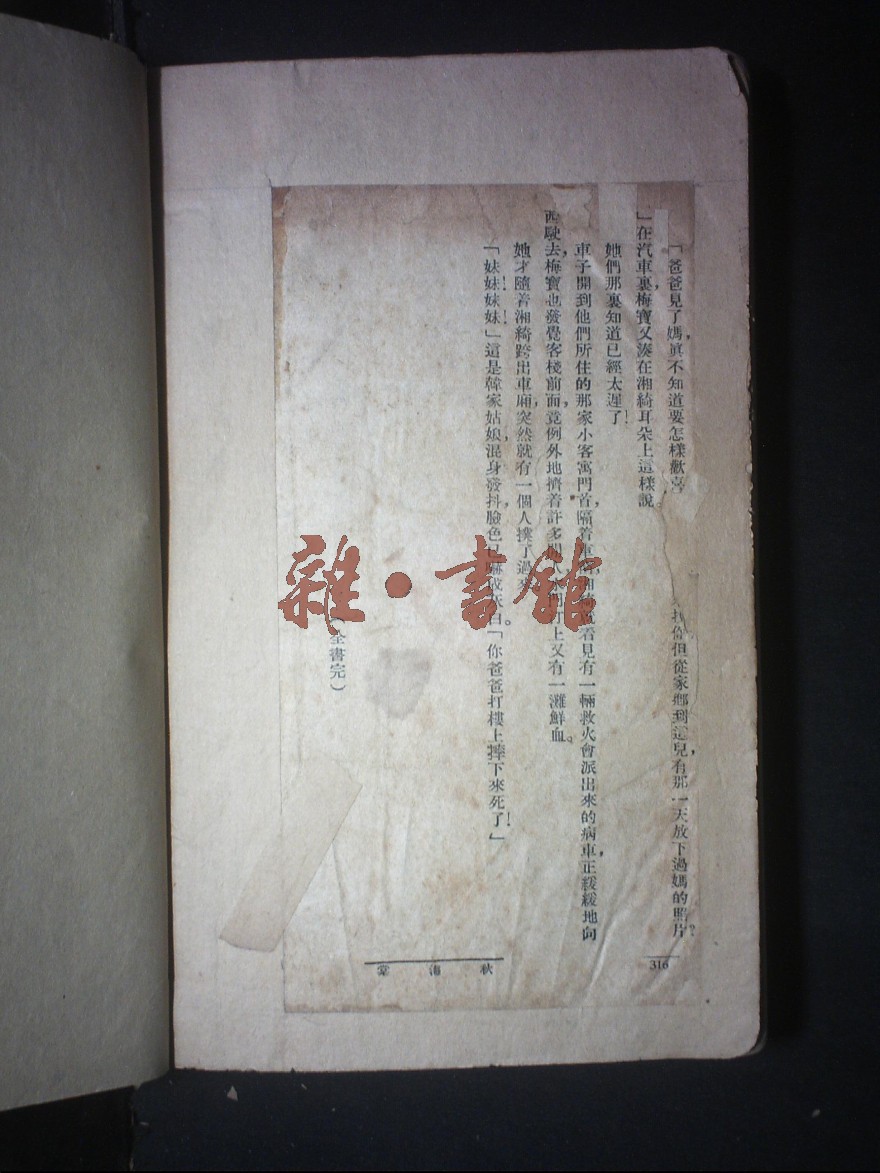 「爸爸見了媽，眞不知道要怎樣歡喜
但從家鄉到這兒，有那一天放下過媽的照片？
」在汽車裏，梅寶又湊在湘綺耳朵上這樣說。
她們那裏知道已經太遲了！
車子開到他們所住的那家小客寓門首，隔着車
看見有一輛救火會派出來的病車，正緩緩地向
西駛去，梅寶也發覺客棧前面，竟例外地擠着許多
上又有一灘鮮血。
她才隨着湘綺跨出車廂，突然就有一個人撲了過來。
「妹妹！妹妹！」這是韓家姑娘，混身發抖，臉色
白。「你爸爸打樓上摔下來死了！」
（全書完）
316
秋海棠
雜·書館